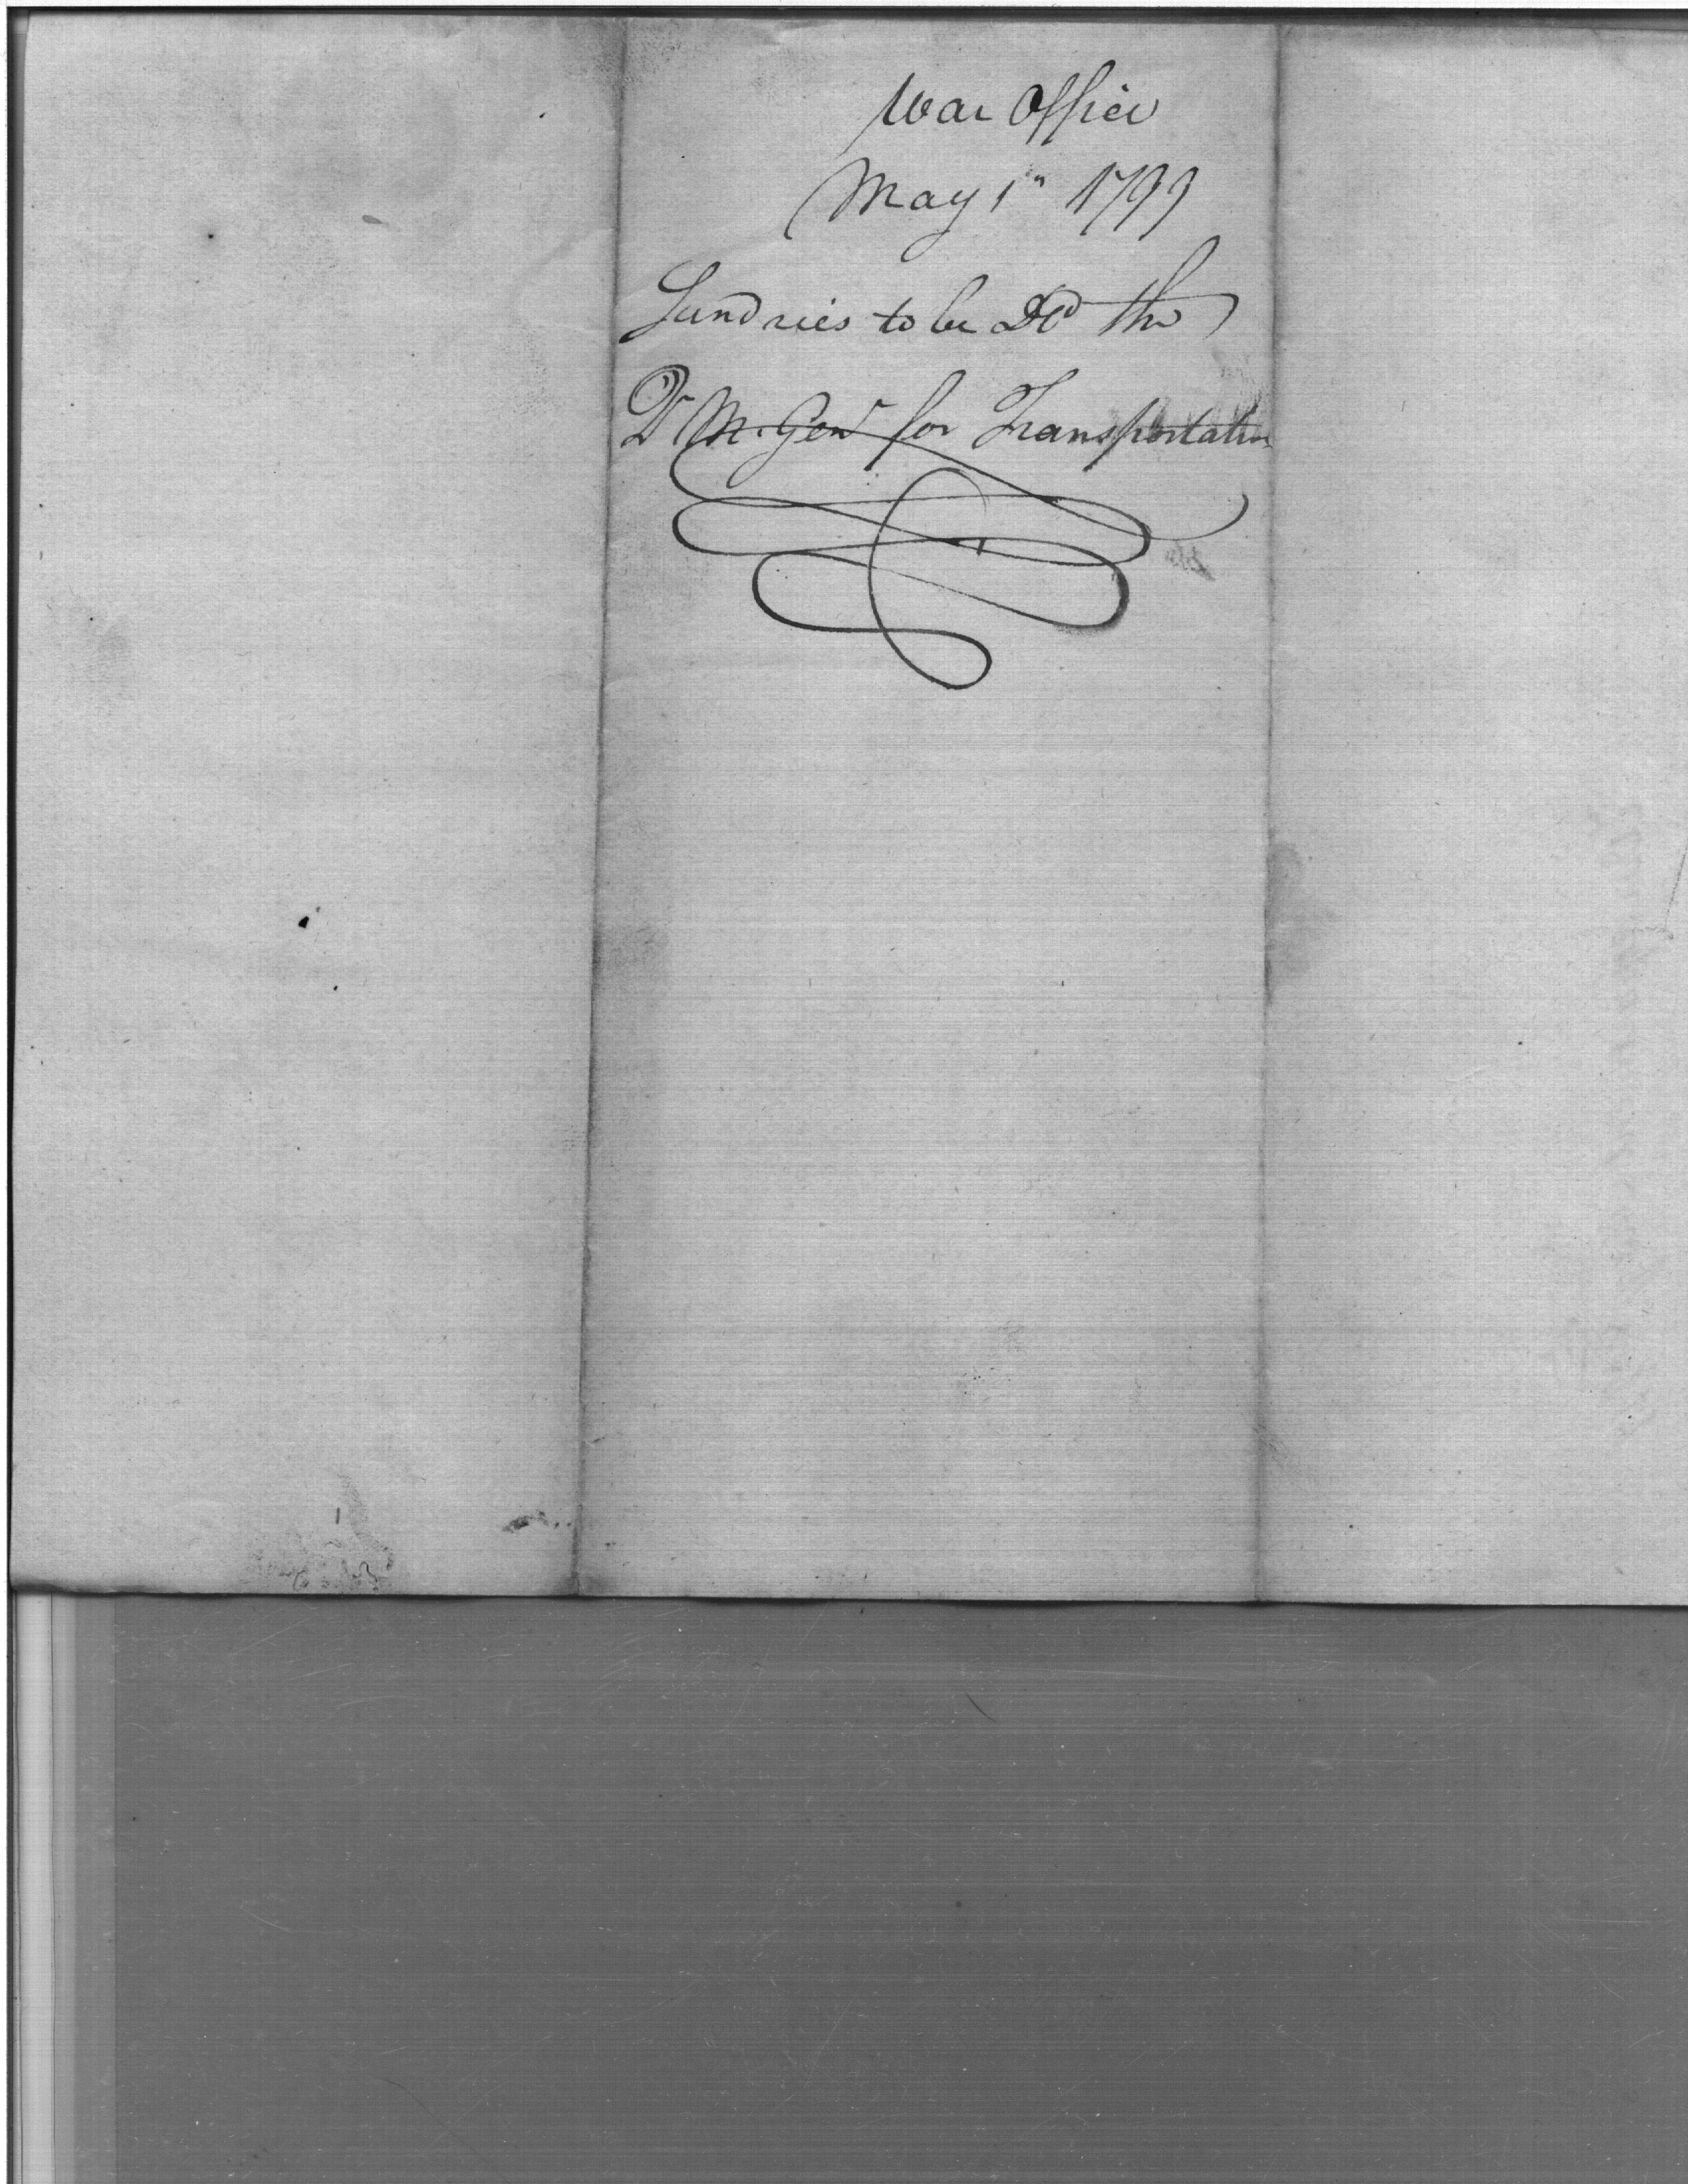 War Office
May 1st 1799
Sundries to be Dd the
Qr M. Genl for Transportation